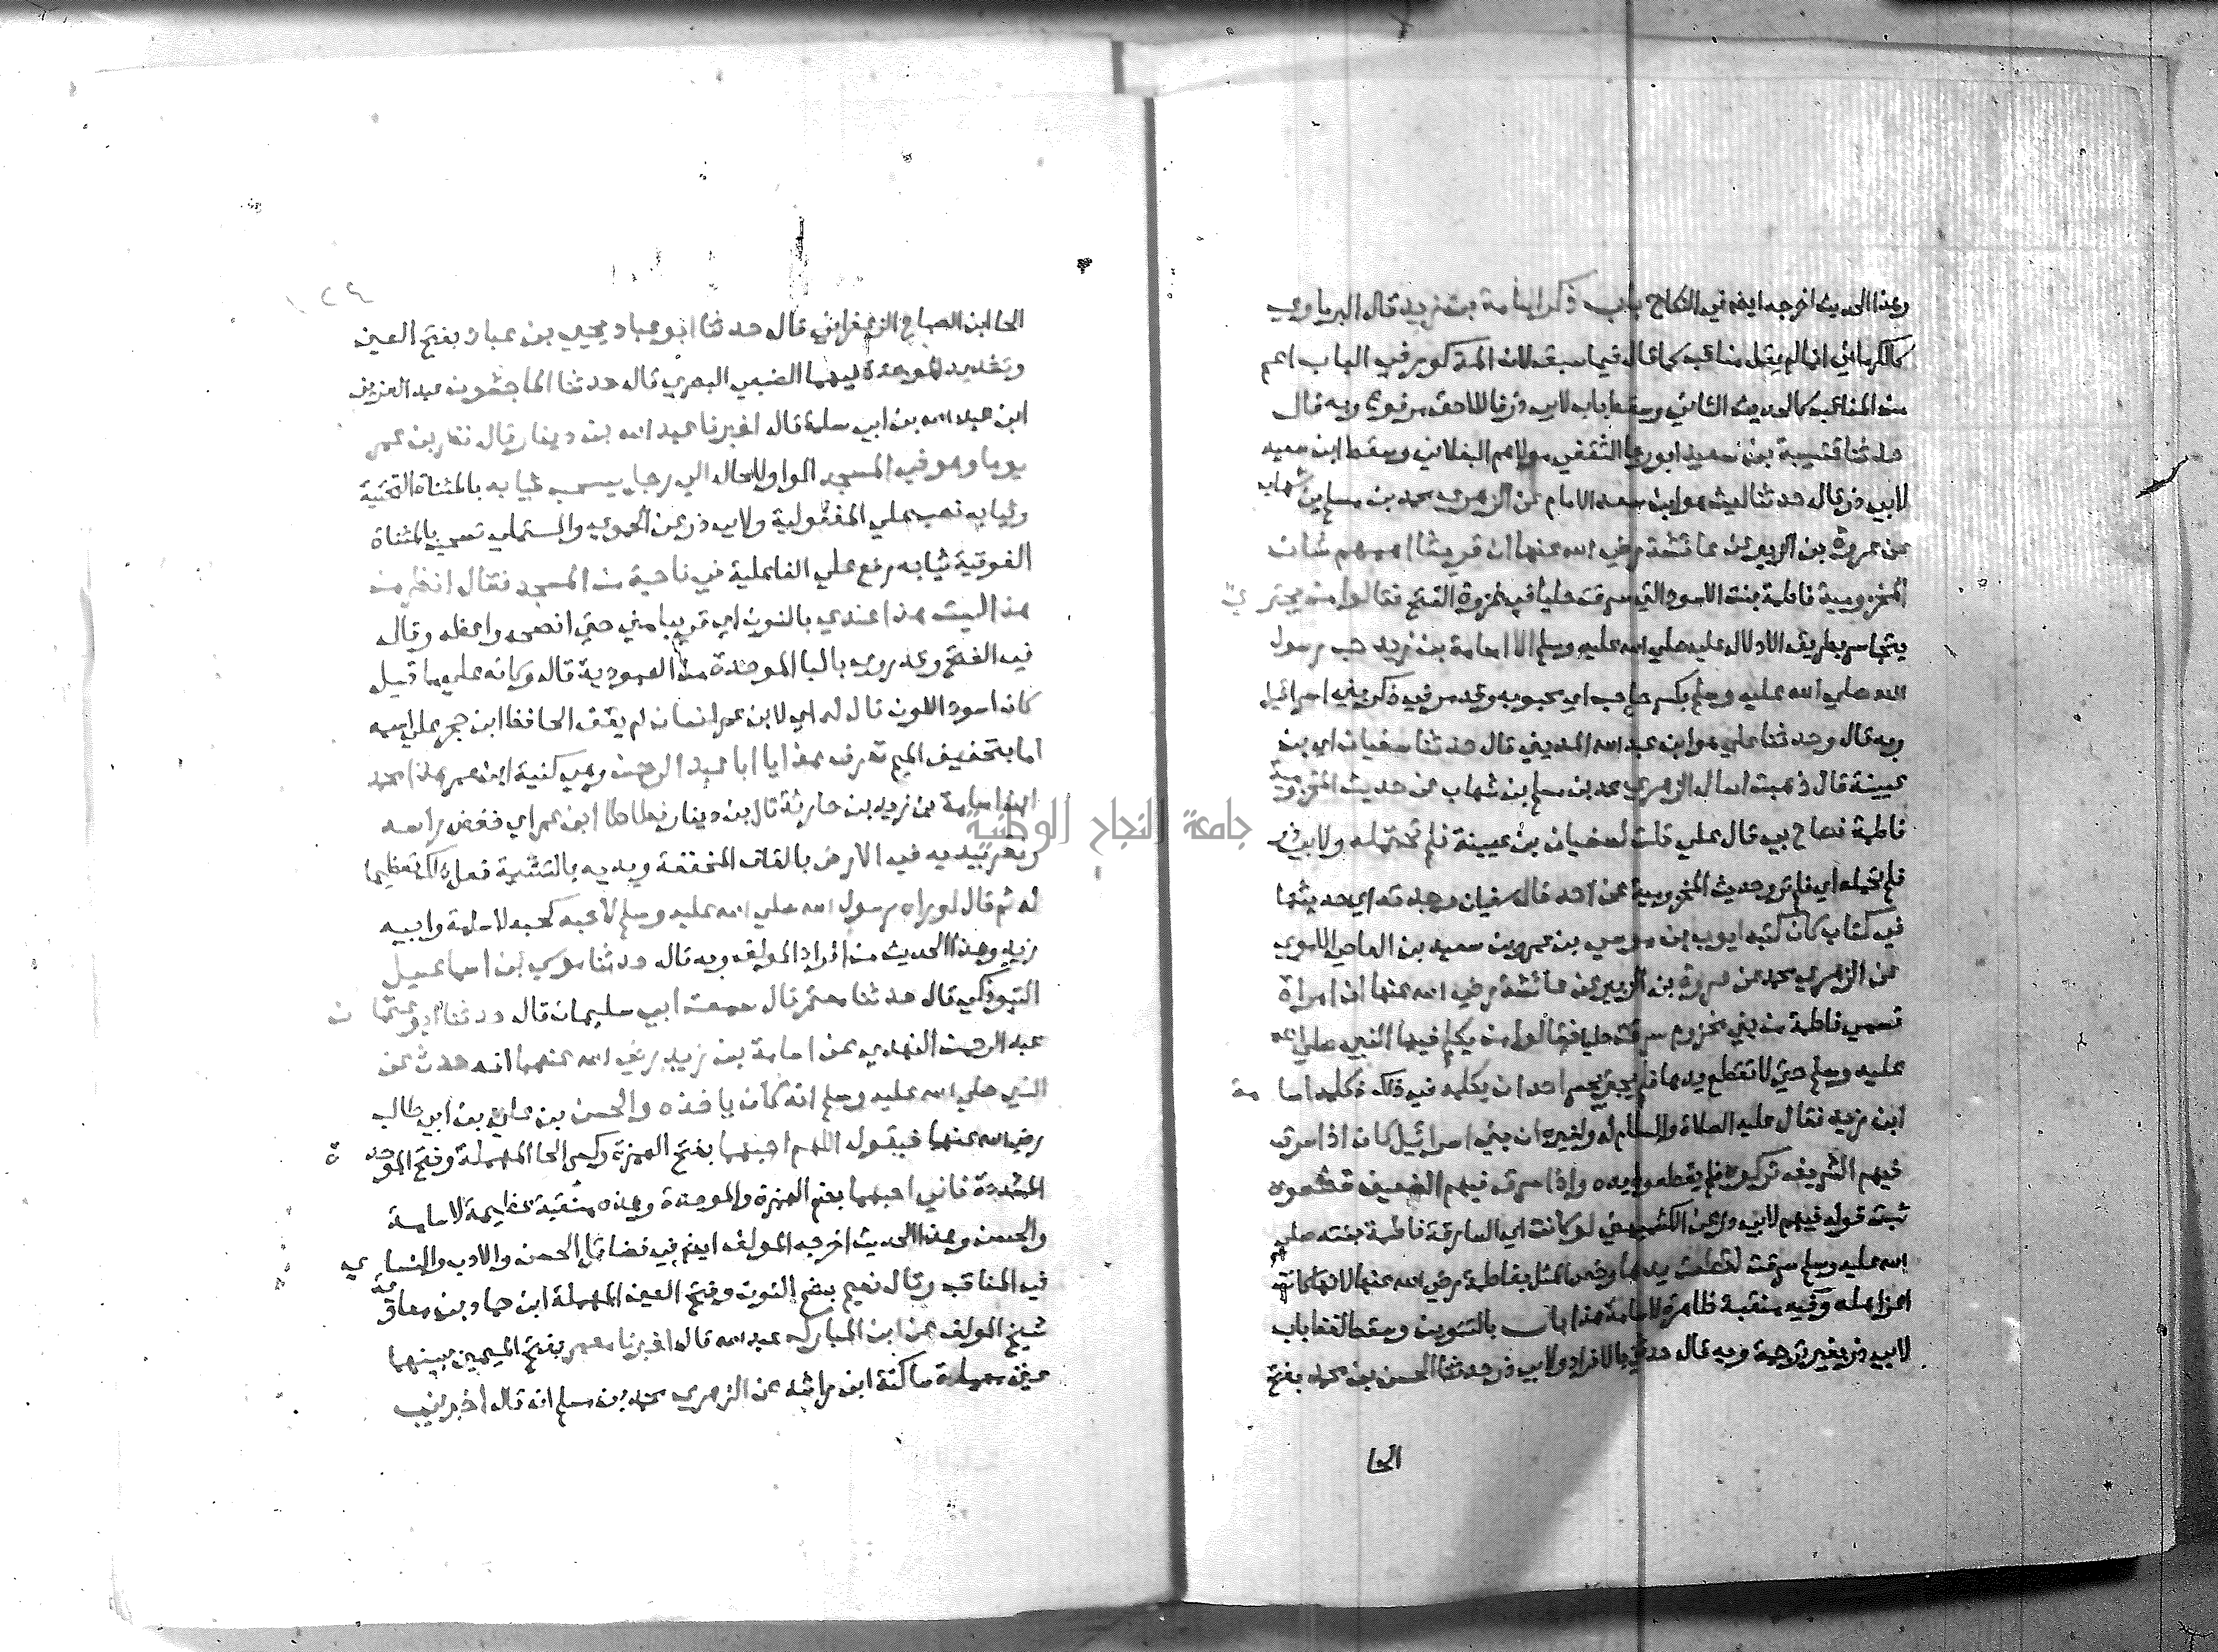 وهذا الحديث اخرجه ايضا في النكاح باب ذكر اسامة بن زيد قال البرماوي
كالكرماني انما لم يقل مناقب كما قال فيما سبق لان المذكور في الباب اعم
من المناقب كالحديث الثاني وسقط باب لابي ذر فاللاحق مرفوع وبه قال
حدثنا قتيبة بن سعيد ابو رجا الثقفي مولاهم البغلاني وسقط ابن سعيد
لابي ذر قال حدثنا ليث هو ابن سعد الامام عن الزهري محمد بن مسلم بن شهاب
عن عروة بن الزبير عن عائشة رضي الله عنها ان قريشا اهمهم شان
المخزومية فاطمة بنت الاسود التي سرقت حليا في غزوة الفتح فقالوا من يجتري
يتجاسر بطريق الادلال عليه صلي الله عليه وسلم الا اسامة بن زيد حب رسول
الله صلي الله عليه وسلم بكسر حا حب اي محبوبه وقد مر في ذكر بني اسرائيل
وبه قال وحدثنا علي هو ابن عبد الله المديني قال حدثنا سفيان اي بن
عيينة قال ذهبت اسال الزهري محمد بن مسلم بن شهاب عن حديث المخزومية
فاطمة فصاح بي قال علي قلت لسفيان بن عيينة فلم تحتمله ولابي ذر
فلم تحمله اي فلم ترو حديث المخزومية عن احد قال سفيان وجدته اي حديثها
في كتاب كان كتبه ايوب بن موسي بن عمرو بن سعيد بن العاصي الاموي
عن الزهري محمد عن عروة بن الزبير عن عائشة رضي الله عنها ان امراة
تسمي فاطمة من بني مخزوم سرقت حليا فقالوا من يكلم فيها النبي صلي الله
عليه وسلم حتي لا تقطع يدها فلم يجتر احد ان يكلمه في ذلك فكلمه اسامة
ابن زيد فقال عليه الصلاة والسلام له ولغيره ان بني اسرائيل كان اذا سرق
فيهم الشريف تركوه فلم يقطعوا يده واذا سرق فيهم الضعيف قطعوه
ثبت قوله فيهم لابي ذر عن الكشميهني لو كانت اي السارقة فاطمة بنته صلي
الله عليه وسلم سرقت لقطعت يدها وخصها مثل بفاطمة رضي الله عنها لانها كانت
اعز اهله وفيه منقبة ظاهرة لاسامة هذا باب بالتنوين وسقط لفظ باب
لابي ذر بغير ترجمة وبه قال حدثني بالافراد ولابي ذر حدثنا الحسن بن محمد بفتح
الحا
الحا ابن الصباح الزعفراني قال حدثنا ابو عباد يحيي بن عباد بفتح العين
وتشديد الموحدة فيهما الضبعي البصري قال حدثنا الماجشون عبد العزيز
ابن عبد الله بن ابي سلمة قال اخبرنا عبد الله بن دينار قال نظر بن عمر
يوما وهو في المسجد الواو للحال الي رجل يسحب ثيابه بالمثناة التحتية
وثيابه نصب علي المفعولية ولابي ذر عن الحموي والمستملي تسحب بالمثناة
الفوقية ثيابه رفع علي الفاعلية في ناحية من المسجد فقال انظر من
هذا ليت هذا عندي بالنون اي قريبا مني حتي انصحه واعظه وقال
في الفتح وقد روي بالبا الموحدة من العبودية قال وكانه علي ما قيل
كان اسود اللون قال له اي لابن عمر انسان لم يقف الحافظ ابن حجر علي اسمه
اما بتخفيف الميم تعرف هذا يا ابا عبد الرحمن وهي كنية ابن عمر هذا محمد
ابن اسامة بن زيد بن حارثة قال بن دينار فطاطا ابن عمر اي خفض راسه
ونقر بيديه في الارض بالقاف المخففة ويديه بالتثنية فعل ذلك تعظيما
له ثم قال لو راه رسول الله صلي الله عليه وسلم لاحبه كحبه لاسامة وابيه
زيد وهذا الحديث من افراد المولف وبه قال حدثنا موسي بن اسماعيل
التبوذكي قال حدثنا معتمر قال سمعت ابي سليمان قال حدثنا ابو عثمان
عبد الرحمن النهدي عن اسامة بن زيد رضي الله عنهما انه حدث عن
النبي صلي الله عليه وسلم انه كان ياخذه والحسن بن علي بن ابي طالب
رضي الله عنهما فيقول اللهم احبهما بفتح الهمزة وكسر الحا المهملة وفتح الموحدة
المشددة فاني احبهما بضم الهمزة والموحدة وهذه منقبة عظيمة لاسامة
والحسن وهذا الحديث اخرجه المولف ايضا في فضائل الحسن والادب والنساي
في المناقب وقال نعيم بضم النون وفتح العين المهملة ابن حماد بن معاوية
شيخ المولف عن ابن المبارك عبد الله قال اخبرنا معمر بفتح الميمين بينهما
عين مهملة ساكنة ابن راشد عن الزهري محمد بن مسلم انه قال اخبرني
جامعة النجاح الوطنية